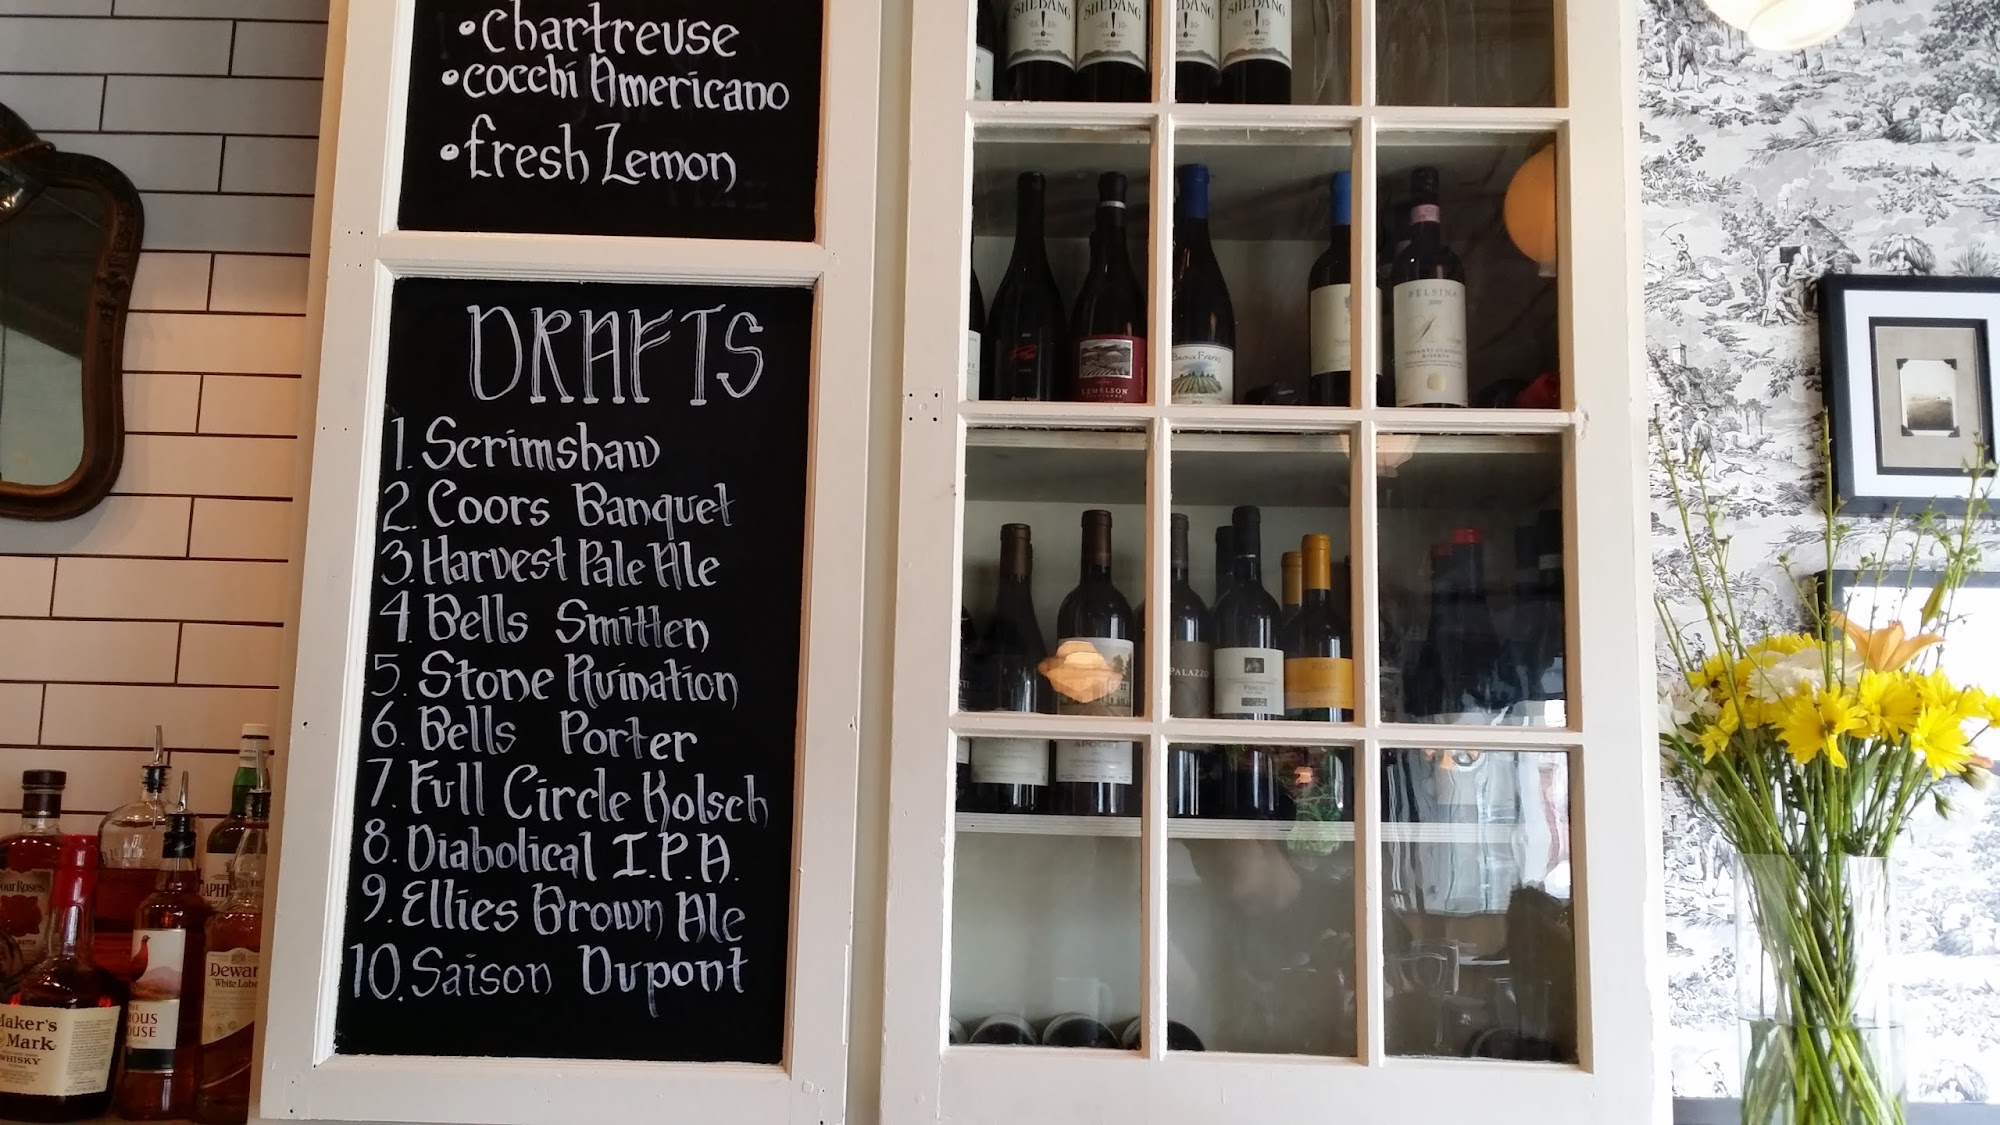 •Chartreuse
•Cocchi Americano
•fresh Lemon
DRAFTS
1. Scrimshaw
2. Coors Banquet
3. Harvest Pale Ale
4. Bells Smitten
5. Stone Ruination
6. Bells Porter
7. Full Circle Kolsch
8. Diabolical I.P.A.
9. Ellies Brown Ale
10. Saison Dupont
SHEBANG
SHEBANG
SHEBANG
Beaux Frères
LEMELSON
FELSINA
2009
CHIANTI CLASSICO
RISERVA
PALAZZO
Four Roses
Maker's
Mark
WHISKY
Dewar
White Labe